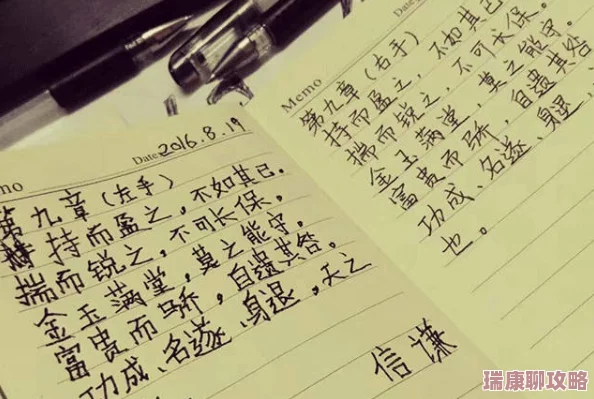 no
Date 2016.8.19
第九章（左手）
持而盈之，不如其已。
揣而锐之，不可长保，
金玉满堂，莫之能守。
富贵而骄，自遗其咎。
功成、名遂、身退，天之
信谦
Memo
Date
第九章（右手）
持而盈之，不如其已
揣而锐之，不可长保。
金玉满堂，莫之能守。
富贵而骄，自遗其咎
功成、名遂、身退、
也。
瑞康聊攻略